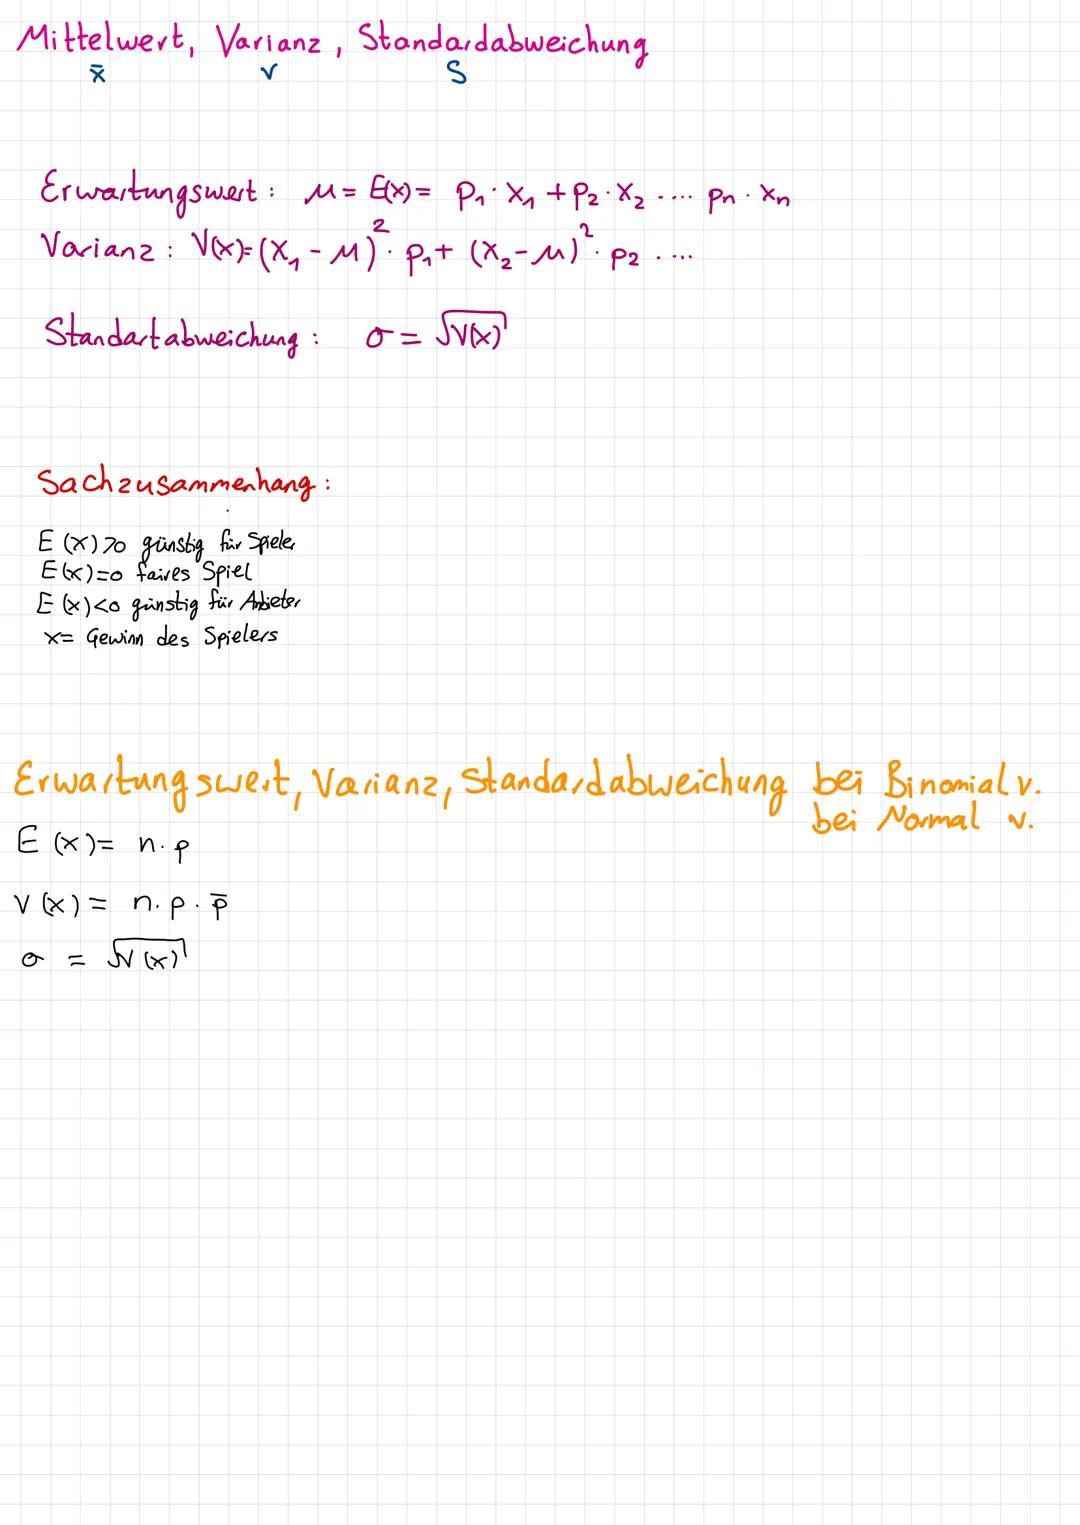 Mittelwert, Varianz, Standardabweichung
x̄ v S
Erwartungswert: μ = E(x) = p₁ · x₁ + p₂ · x₂ .... pn · xn
Varianz: V(x) = (x₁ - μ)² · p₁ + (x₂ - μ)² · p₂ ....
Standartabweichung: σ = √V(x)
Sachzusammenhang:
E (x) >0 günstig für Spieler
E (x) =0 faires Spiel
E (x) <0 günstig für Anbieter
x= Gewinn des Spielers
Erwartungswert, Varianz, Standardabweichung bei Binomial v.
bei Normal v.
E (x) = n · p
V (x) = n · p · p̄
σ = √V (x)